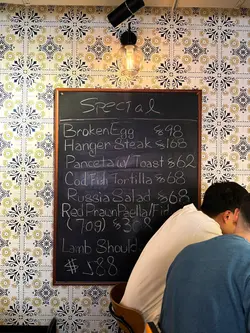 Special
Broken Egg $98
Hanger Steak $168
Panceta w/ Toast $62
Cod Fish Tortilla $68
Russia Salad $68
Red Praun Paella/
(709)
Lamb Should
$ 588